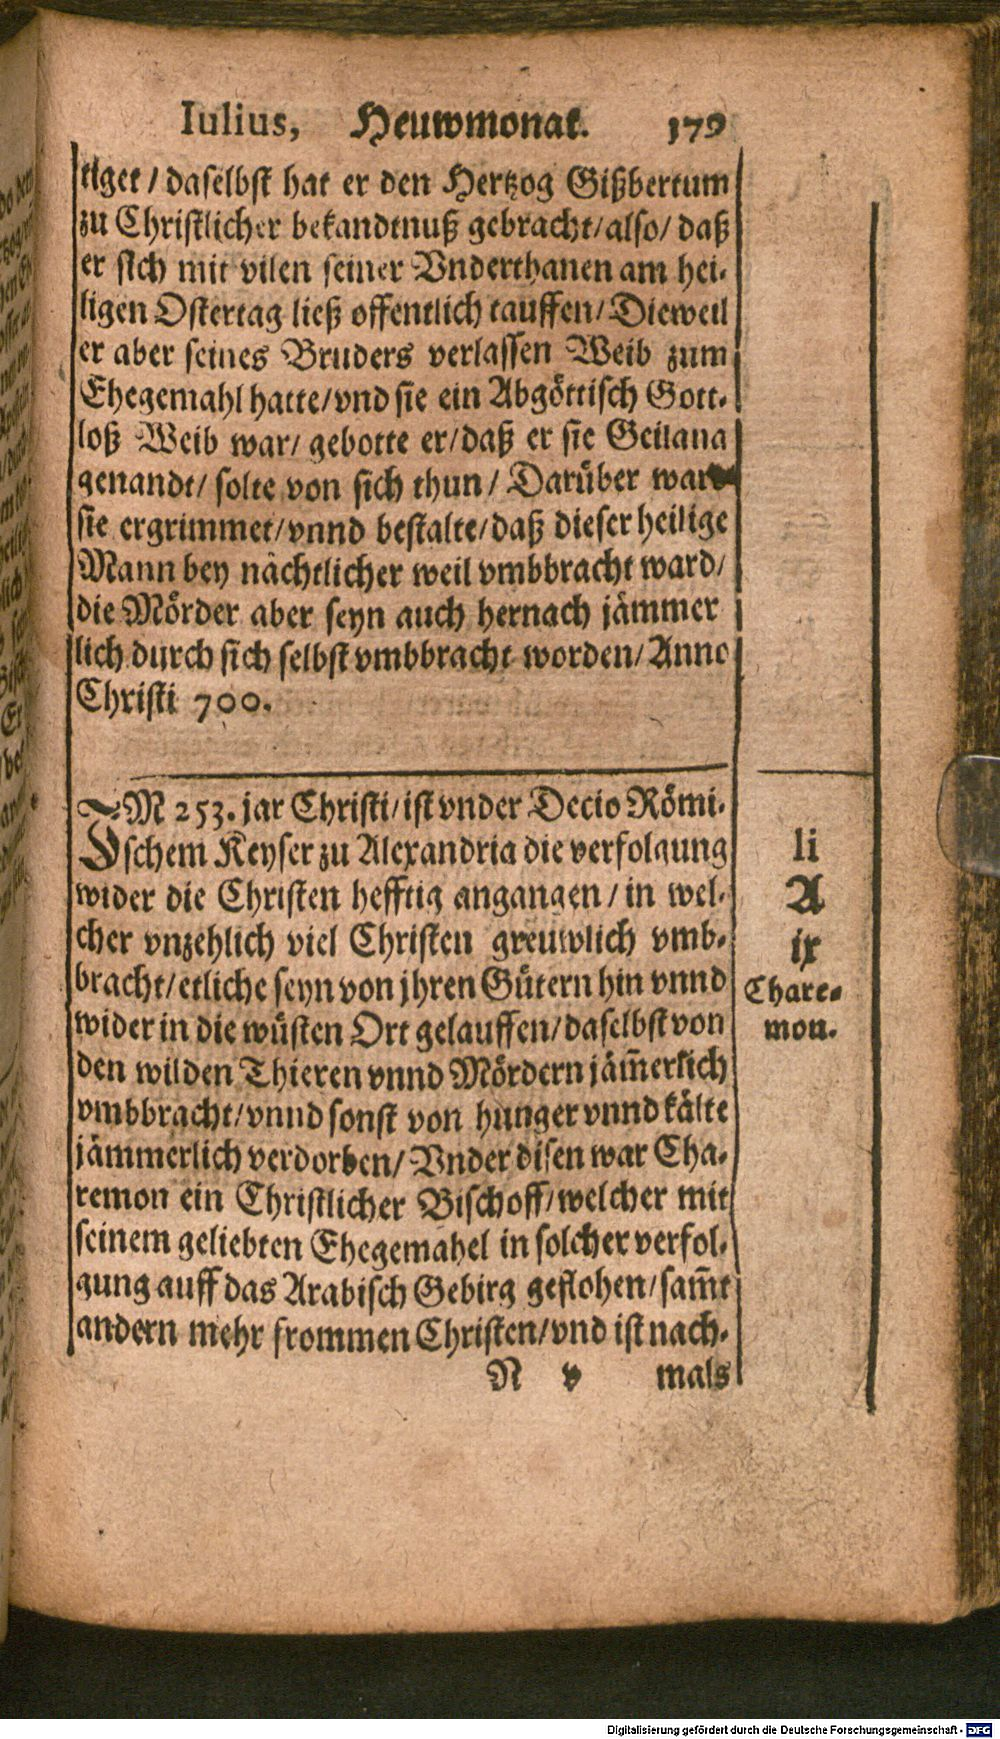 Iulius, Heuwmonat. 179
tiget / daselbst hat er den Hertzog Gißbertum
zu Christlicher bekandtnuß gebracht/also/ daß
er sich mit vilen seiner Vnderthanen am hei-
ligen Ostertag ließ offentlich tauffen/ Dieweil
er aber seines Bruders verlassen Weib zum
Ehegemahl hatte/vnd sie ein Abgöttisch Gott-
loß Weib war/ gebotte er/daß er sie Geilana
genandt/ solte von sich thun/ Darüber ward
sie ergrimmet/vnnd bestalte/daß dieser heilige
Mann bey nächtlicher weil vmbbracht ward/
die Mörder aber seyn auch hernach jämmer
lich durch sich selbst vmbbracht worden/ Anno
Christi 700.
IM 253. jar Christi/ist vnder Decio Römi-
schem Keyser zu Alexandria die verfolgung
wider die Christen hefftig angangen/ in wel-
cher vnzehlich viel Christen greuwlich vmb-
bracht/etliche seyn von jhren Gütern hin vnnd
wider in die wüsten Ort gelauffen/daselbst von
den wilden Thieren vnnd Mördern jäm̃erlich
vmbbracht/vnnd sonst von hunger vnnd kälte
jämmerlich verdorben/ Vnder disen war Cha-
remon ein Christlicher Bischoff/welcher mit
seinem geliebten Ehegemahel in solcher verfol-
gung auff das Arabisch Gebirg geflohen/sam̃t
andern mehr frommen Christen/vnd ist nach-
N v mals
li
A
ix
Chare-
mon.
Digitalisierung gefördert durch die Deutsche Forschungsgemeinschaft - DFG